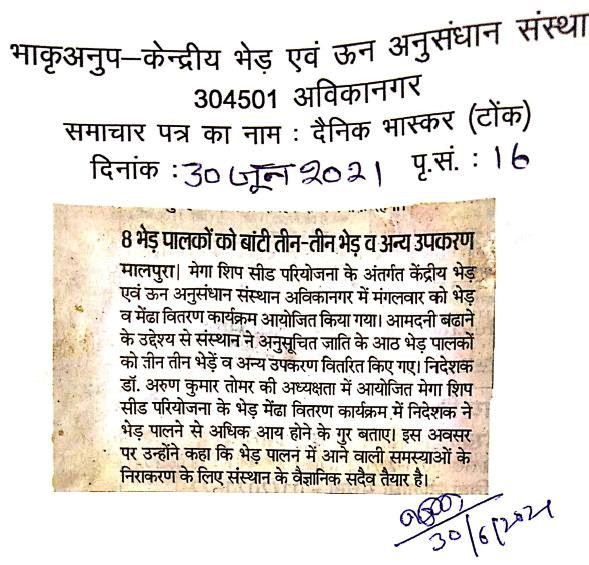 भाकृअनुप–केन्द्रीय भेड़ एवं ऊन अनुसंधान संस्था
304501 अविकानगर
समाचार पत्र का नाम : दैनिक भास्कर (टोंक)
दिनांक : 30 जून 2021 पृ.सं. : 16
8 भेड़ पालकों को बांटी तीन-तीन भेड़ व अन्य उपकरण
मालपुरा। मेगा शिप सीड परियोजना के अंतर्गत केंद्रीय भेड़
एवं ऊन अनुसंधान संस्थान अविकानगर में मंगलवार को भेड़
व मेंढा वितरण कार्यक्रम आयोजित किया गया। आमदनी बढाने
के उद्देश्य से संस्थान ने अनुसूचित जाति के आठ भेड़ पालकों
को तीन तीन भेड़ें व अन्य उपकरण वितरित किए गए। निदेशक
डॉ. अरुण कुमार तोमर की अध्यक्षता में आयोजित मेगा शिप
सीड परियोजना के भेड़ मेंढा वितरण कार्यक्रम में निदेशक ने
भेड़ पालने से अधिक आय होने के गुर बताए। इस अवसर
पर उन्होंने कहा कि भेड़ पालन में आने वाली समस्याओं के
निराकरण के लिए संस्थान के वैज्ञानिक सदैव तैयार है।
30/6/2021